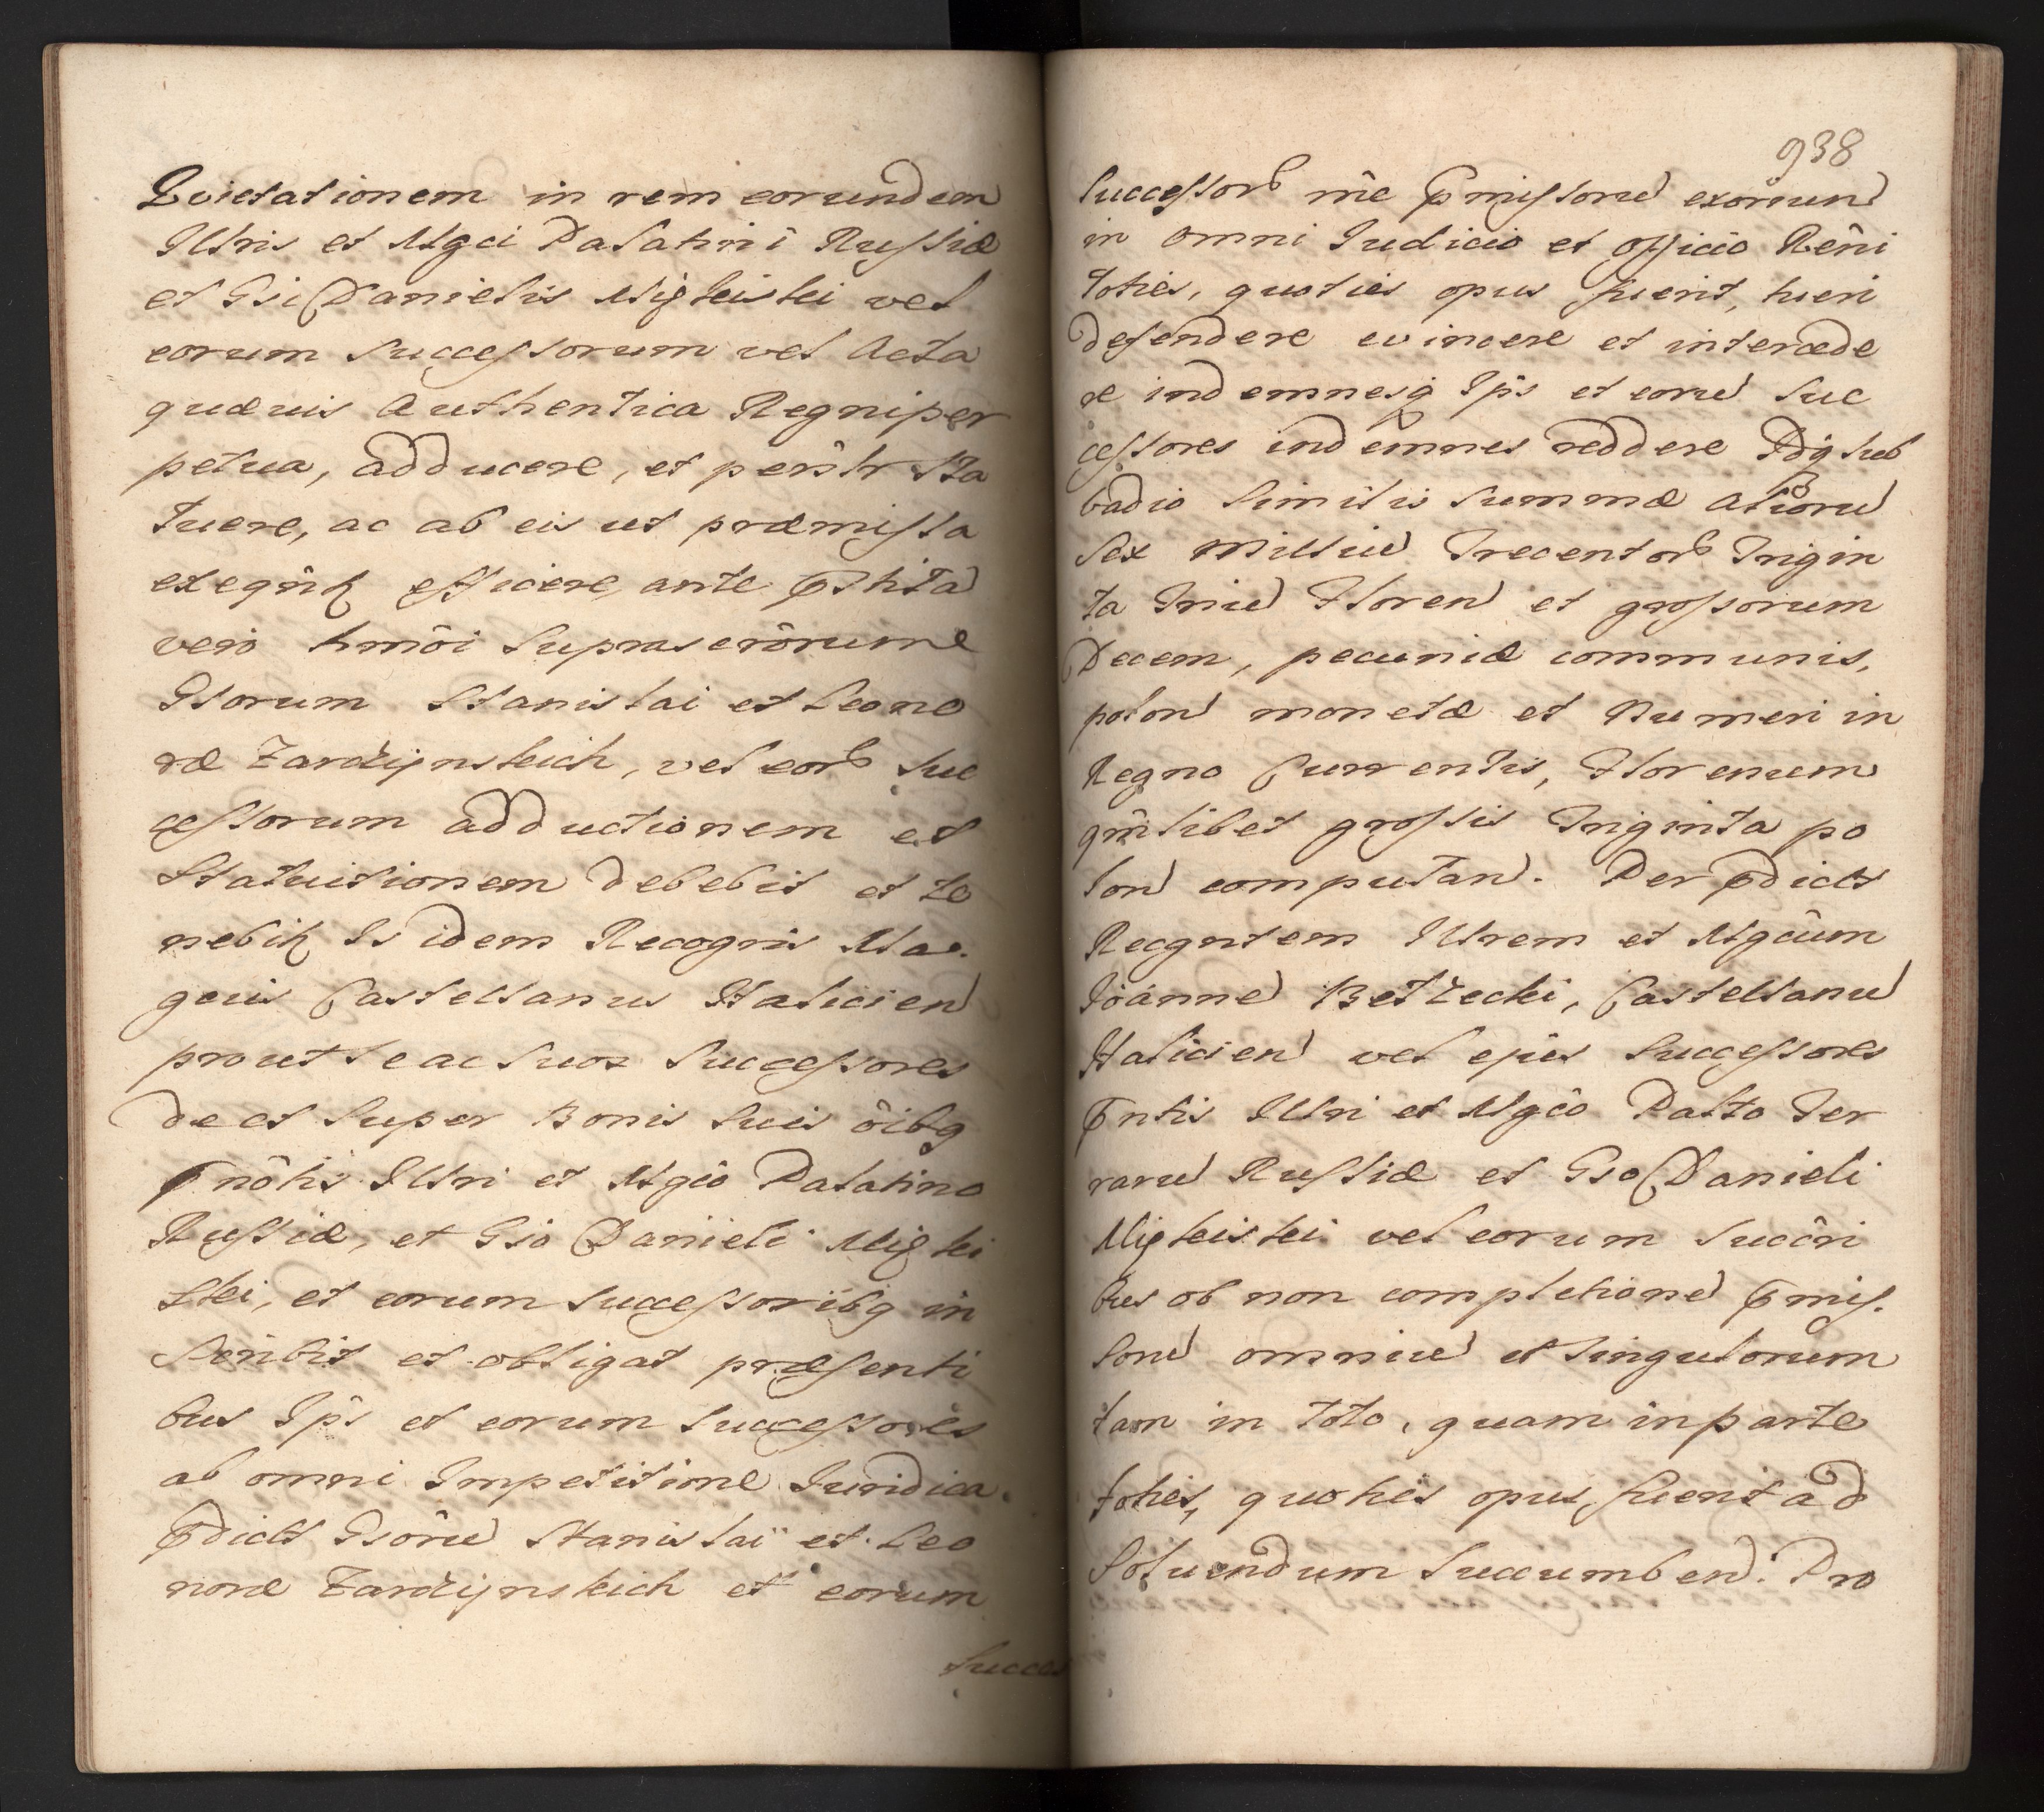 Quietationem in rem eorundem
Illris et Mgci Palatini Russiæ
et Gsi Danielis Mięleiskei vel
eorum Successorum vel Acta
quæuis Authentica Regni per
petua, adducere, et persltr Sta
tuere, ac ab eis ut præmissa
exeqntr efficere, ante
vero hmoi Suprascrorum
Gsorum Stanislai et Leono
ræ Zardzynskich, vel eorb Suc
cessorum adductionem et
Statuitionem debebit et te
nebitr Is idem Recognis Ma-
gcus Castellanus Halicien
prout Se ac Suos Successores
de et Super Bonis Suis oibq
pnotis Illri et Mgco Palatino
Russiæ, et Gso Danieli Mięlei
skei, et eorum Successoribq in
Scribit et obligat præsenti
bus Ips et eorum Successores
ab omni Impetitione Iuridica
pdicts Gsoru Stanislai et Leo
noræ Zardzynskich et eorum
Succes
938
Successorb pmissoru
in omni Iudicio et officio Regni
toties, quoties opus fuerit, tueri
defendere euincere et intercede
re indemnesq Ips et eoru Suc
cessores indemnes reddere Idq sub
vadio Similis Summæ
Sex Milliu Trecentorb Trigin
ta Triu Floren et grossorum
Decem, pecuniæ communis,
polon monetæ et Numeri in
Regno Currentis, Florenum
qmlibet grossis Triginta po
lon computan. Per pdicts
Recgntem Illrem et Mgcum
Joanne Bełzecki, Castellanu
Halicien vel ejus Successores
pntis Illri et Mgco Palto Ter
raru Russiæ et Gso Danieli
Mięleiskei vel eorum Succri
bus ob non completione pmis-
soru omniu et Singulorum
tam in toto, quam in parte
toties, quoties opus fuerit ad
Soluendum Succumben. Pro